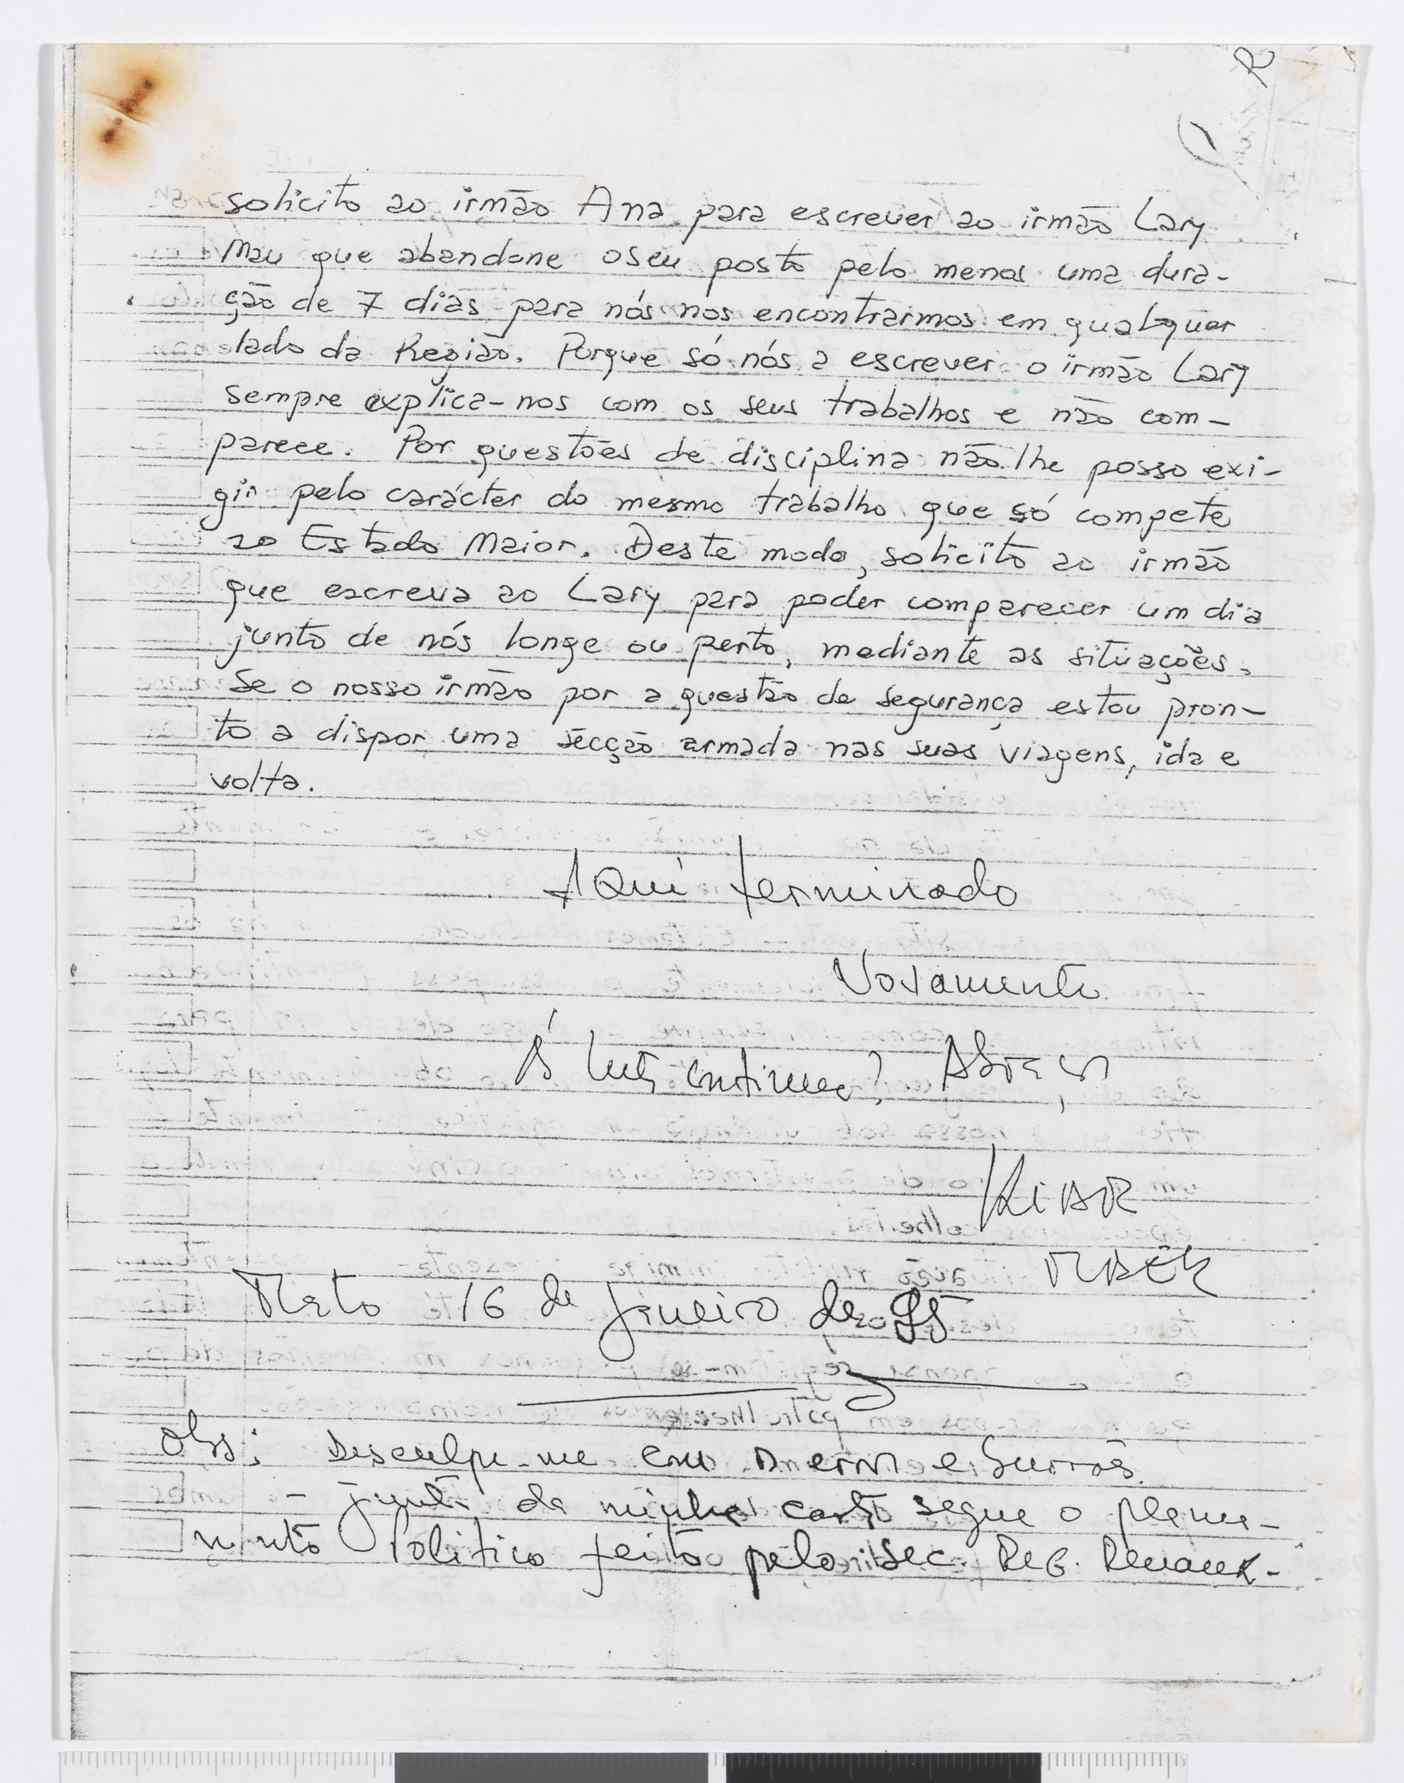 solicito ao irmão Ana para escrever ao irmão Lary
Mau que abandone oseu posto pelo menos uma dura-
ção de 7 dias para nós nos encontrarmos em qualquer
lado da Região. Porque só nós a escrever o irmão Lary
sempre explica-nos com os seus trabalhos e não com-
parece. Por questões de disciplina não lhe posso exi-
gir pelo carácter do mesmo trabalho que só compete
ao Estado Maior. Deste modo, solicito ao irmão
que escreva ao Lary para poder comparecer um dia
junto de nós longe ou perto, mediante as situações.
Se o nosso irmão por a questão de segurança estou pron-
to a dispor uma secção armada nas suas viagens, ida e
volta.
Aqui terminado
Vosamente
Á luta continua? Abraço
KIAR
MBÊK
Mato 16 de Janeiro de 95
Obs: Desculpe-me com o erros e burrós
- Junto da minha carta segue o plena-
mento Politico feito pelo Sec. Reg.